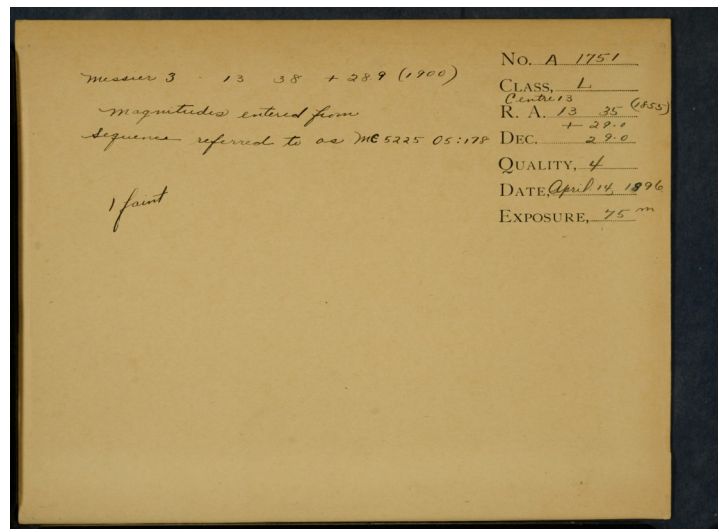 Messier 3 13 38 + 28 9 (1900)
Magnitudes entered from
Sequence referred to as MC 5225 05:178
1 faint
No. A 1751
CLASS, L
Centre 13
R. A. 13 35 (1855)
+ 29.0
DEC. 29.0
QUALITY, 4
DATE, April 14, 1896
EXPOSURE, 75 m